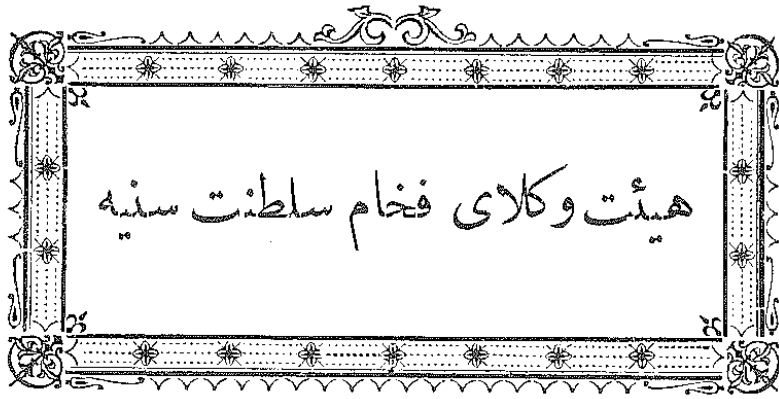 هيئت وكلاى فخام سلطنت سنيه